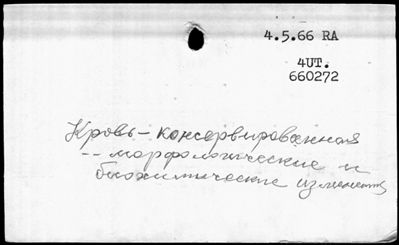 4.5.66 RA
4UT.
660272
Кровь - консервированная
-- морфологические и
биохимические изменения